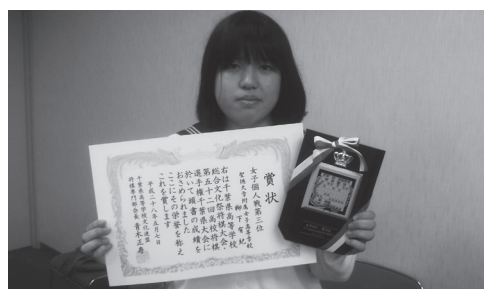 賞状
女子個人戦第三位
聖徳大学附属女子高等学校
柳下有紀
右は千葉県高等学校
総合文化祭将棋大会・
第五十二回高校将棋
選手権千葉県大会に
於いて頭書の成績を
おさめられました
ここにその栄誉を称え
これを賞します
平成二十八年五月七日
千葉県高等学校文化連盟
将棋専門部会長 青木正寿